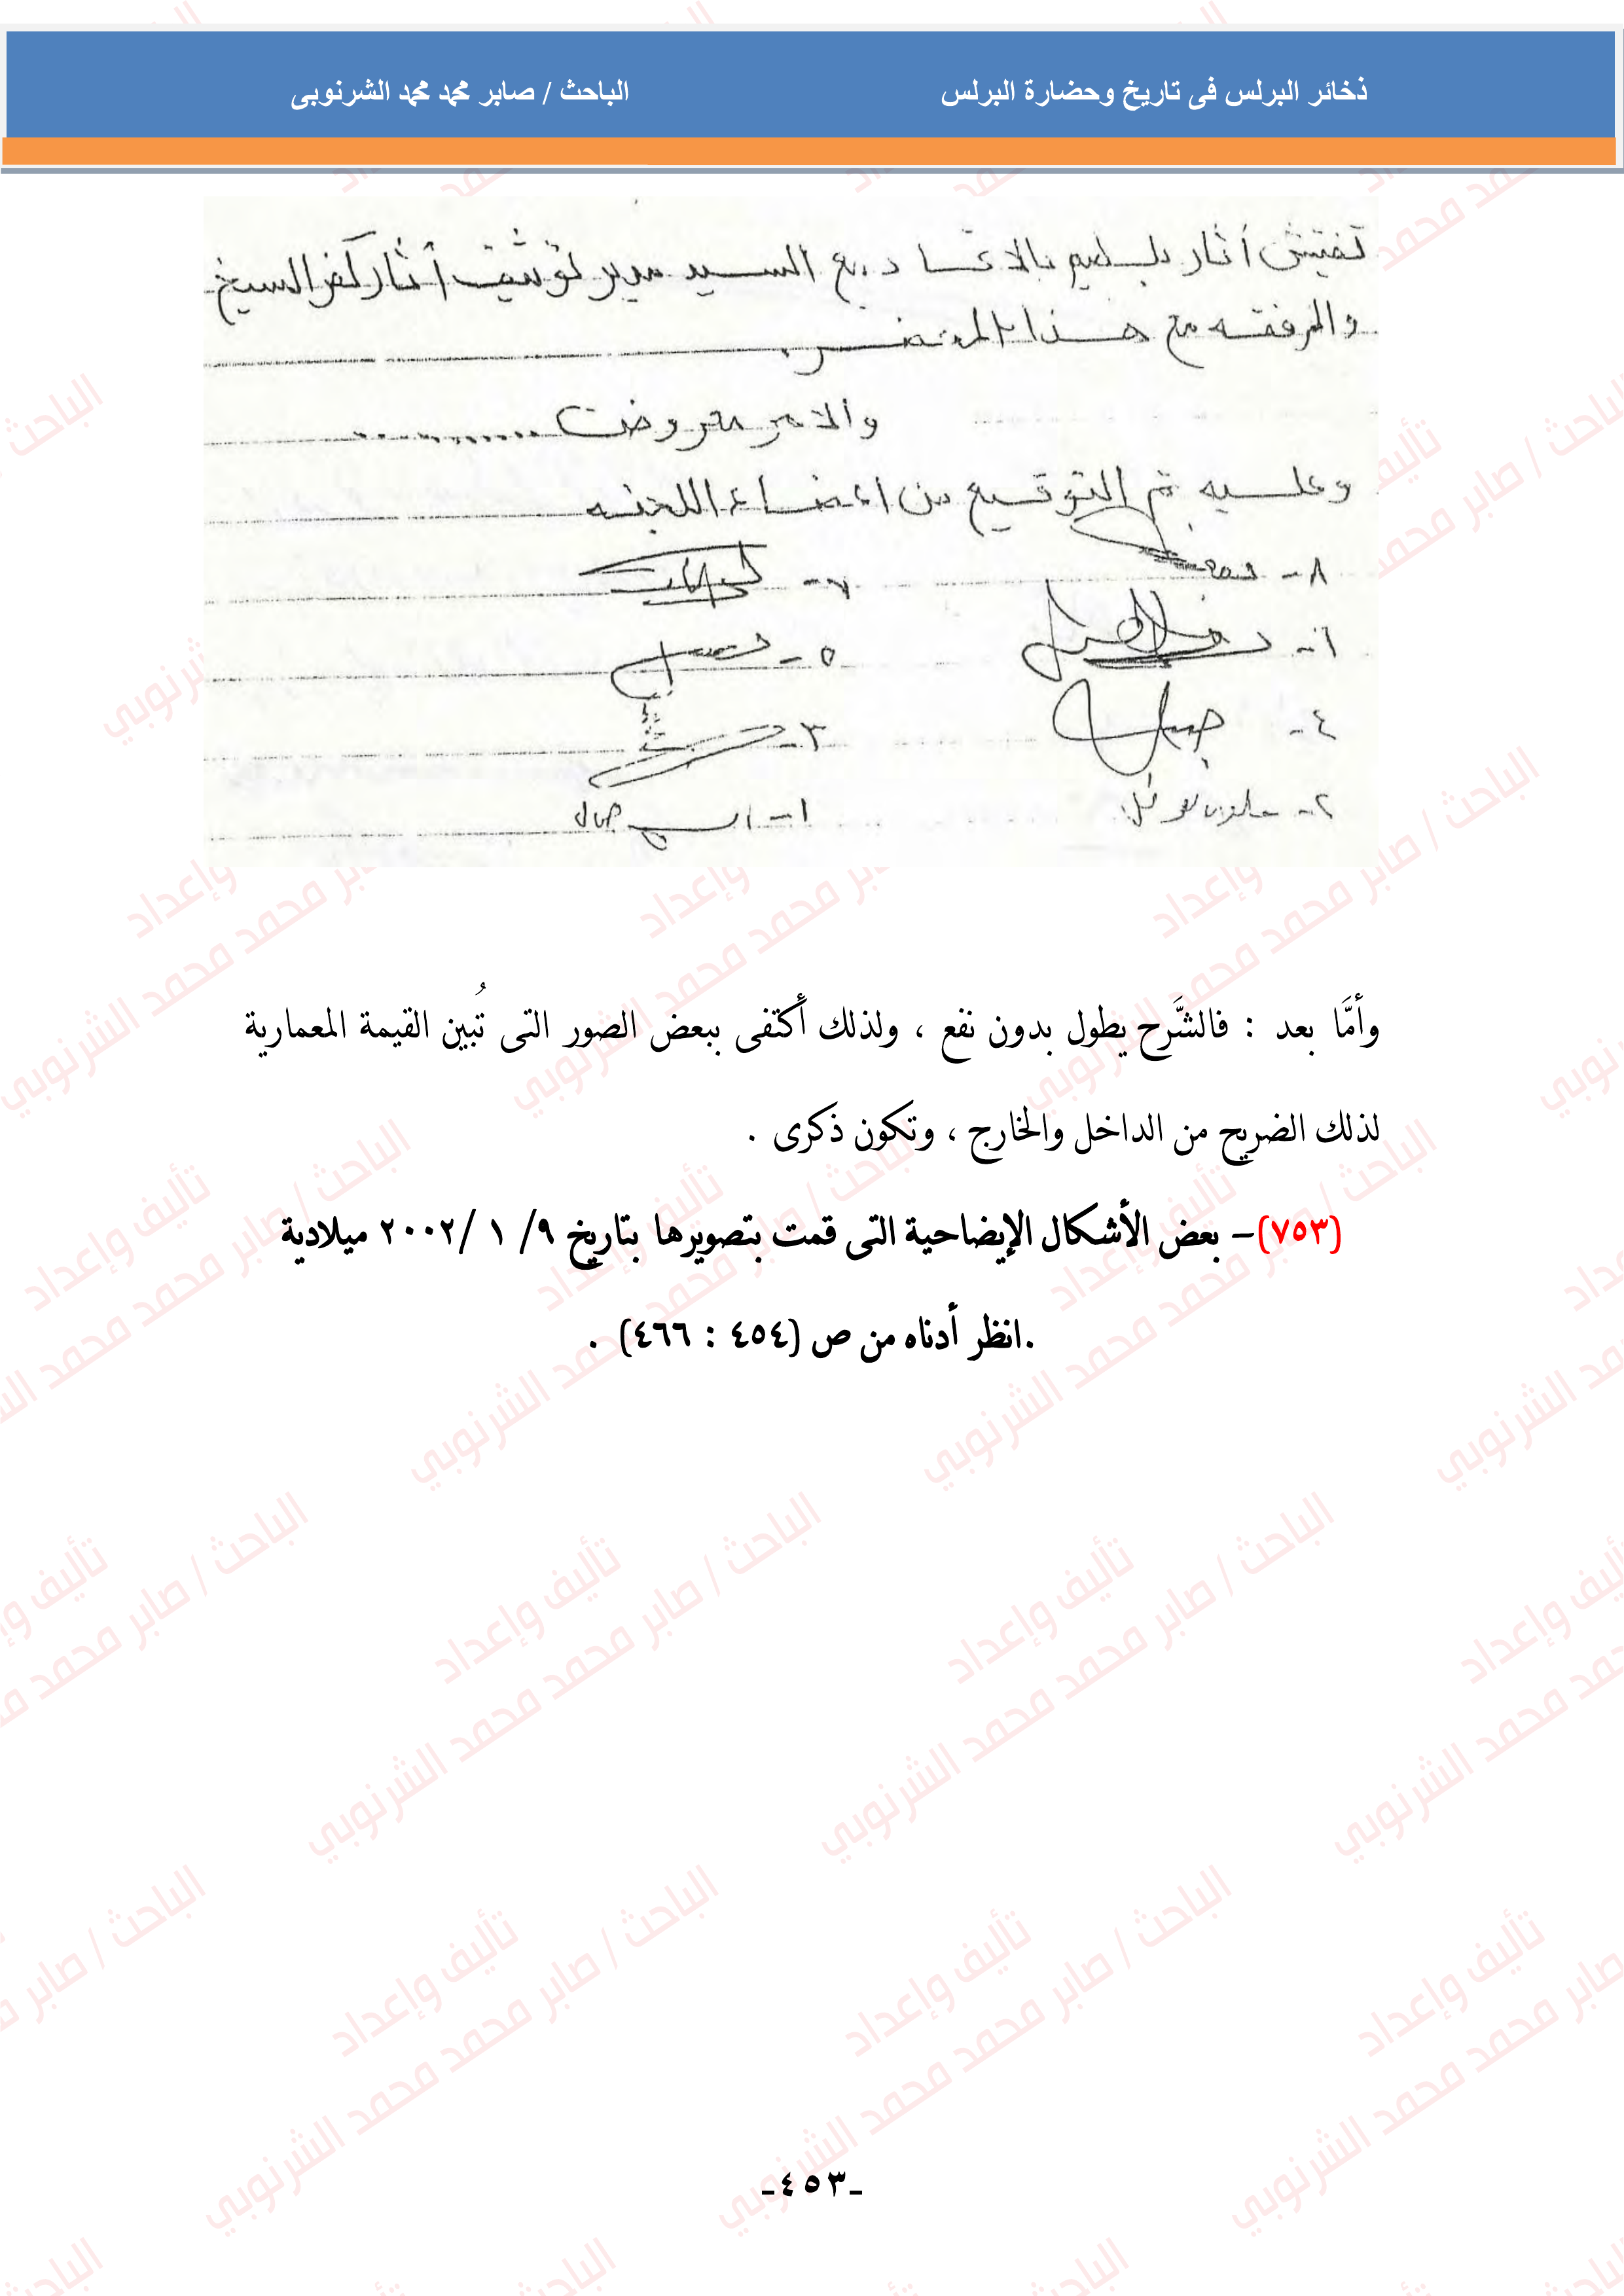 ذخائر البرلس فى تاريخ وحضارة البرلس
الباحث / صابر محمد محمد الشرنوبى
تفتيش أثار بلطيم بالاتحاد مع السيد مدير توثيق أثار كفر الشيخ
والمرفقه مع هذا المحضر
والامر معروض ............
وعليه تم التوقيع من اعضاء اللجنه
٨-
٧-
٦-
٥-
٤-
٣-
٢-
١-
وأمَّا بعد : فالشَّرح يطول بدون نفع ، ولذلك أكتفى ببعض الصور التى تُبين القيمة المعمارية
لذلك الضريح من الداخل والخارج ، وتكون ذكرى .
(٧٥٣)– بعض الأشكال الإيضاحية التى قمت بتصويرها بتاريخ ٩/ ١ /٢٠٠٢ ميلادية
.انظر أدناه من ص (٤٥٤ : ٤٦٦) .
-٤٥٣-
تأليف وإعداد
الباحث / صابر محمد محمد الشرنوبي